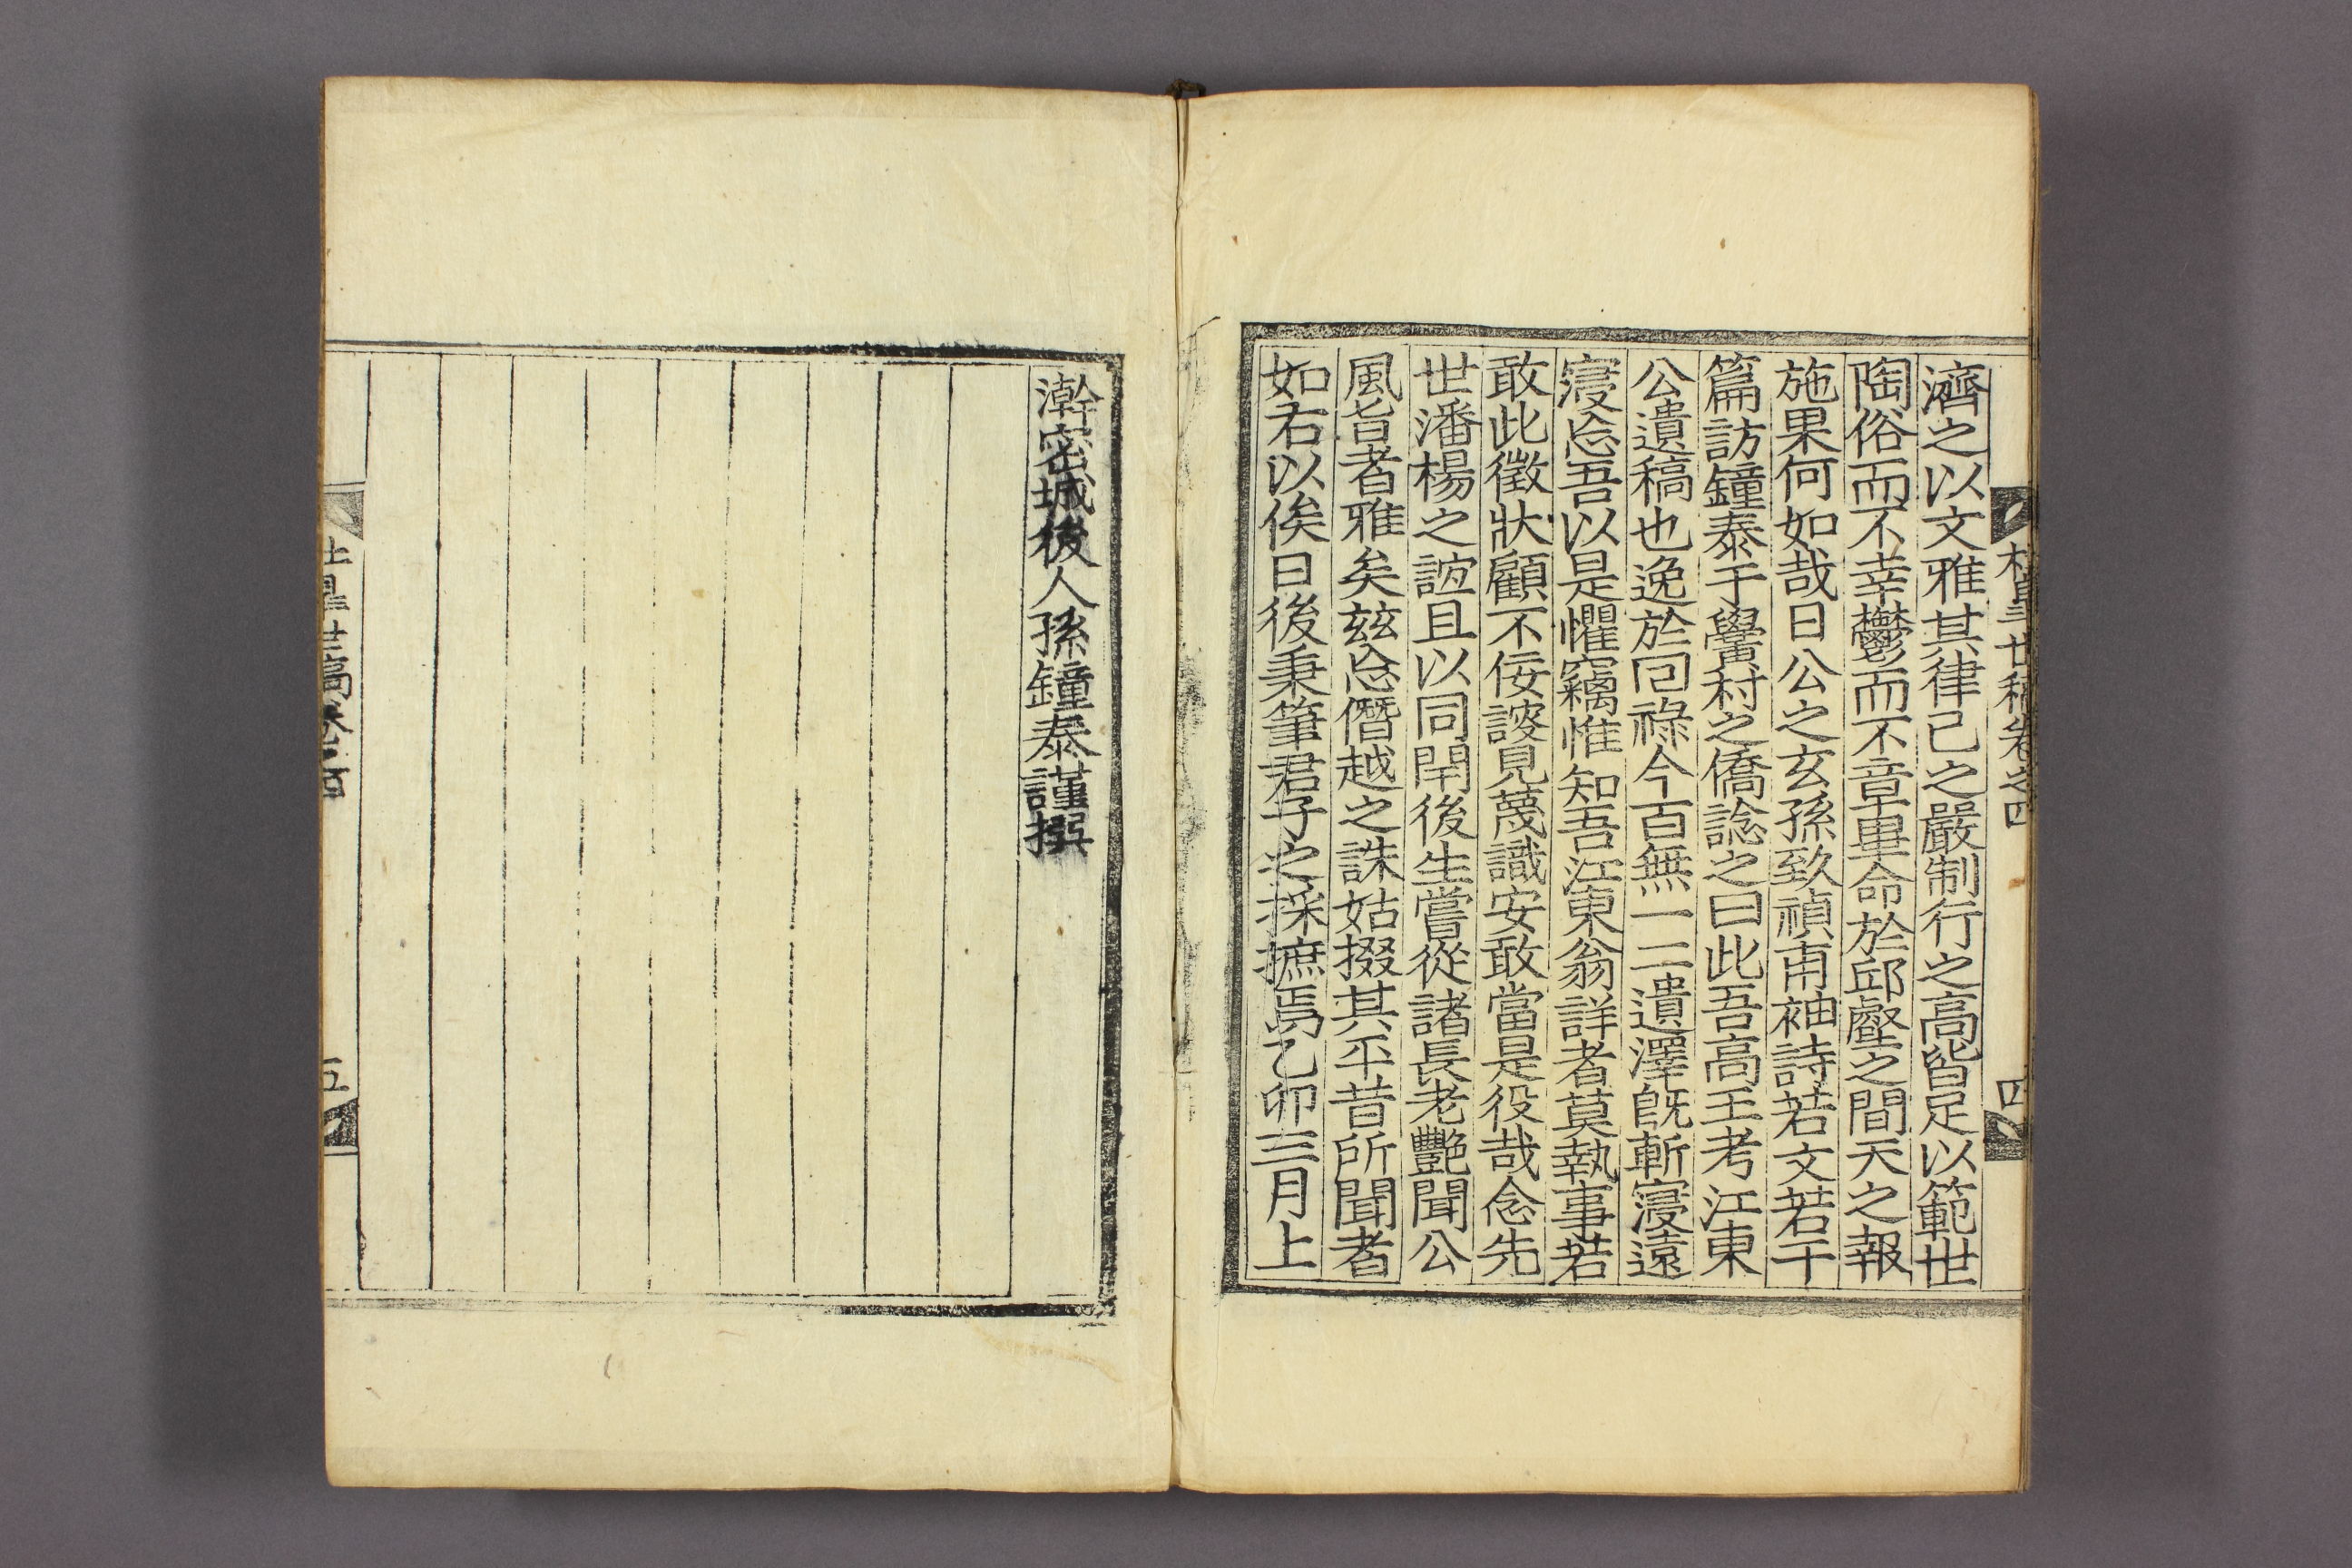 濟之以文雅其律己之嚴制行之高皆足以範世
陶俗而不幸鬱而不章畢命於邱壑之間天之報
施果何如哉日公之玄孫致禎甫袖詩若文若干
篇訪鐘泰于鷽村之僑諗之曰此吾高王考江東
公遺稿也逸於回祿今百無一二遺澤旣斬寖遠
寖忘吾以是懼竊惟知吾江東翁詳者莫執事若
敢此徵狀顧不佞謏見蔑識安敢當是役哉念先
世潘楊之誼且以同閈後生嘗從諸長老艷聞公
風旨者雅矣玆忘僭越之誅姑掇其平昔所聞者
如右以俟日後秉筆君子之採摭焉乙卯三月上
澣密城後人孫鐘泰謹撰
世稿卷之四
四
五